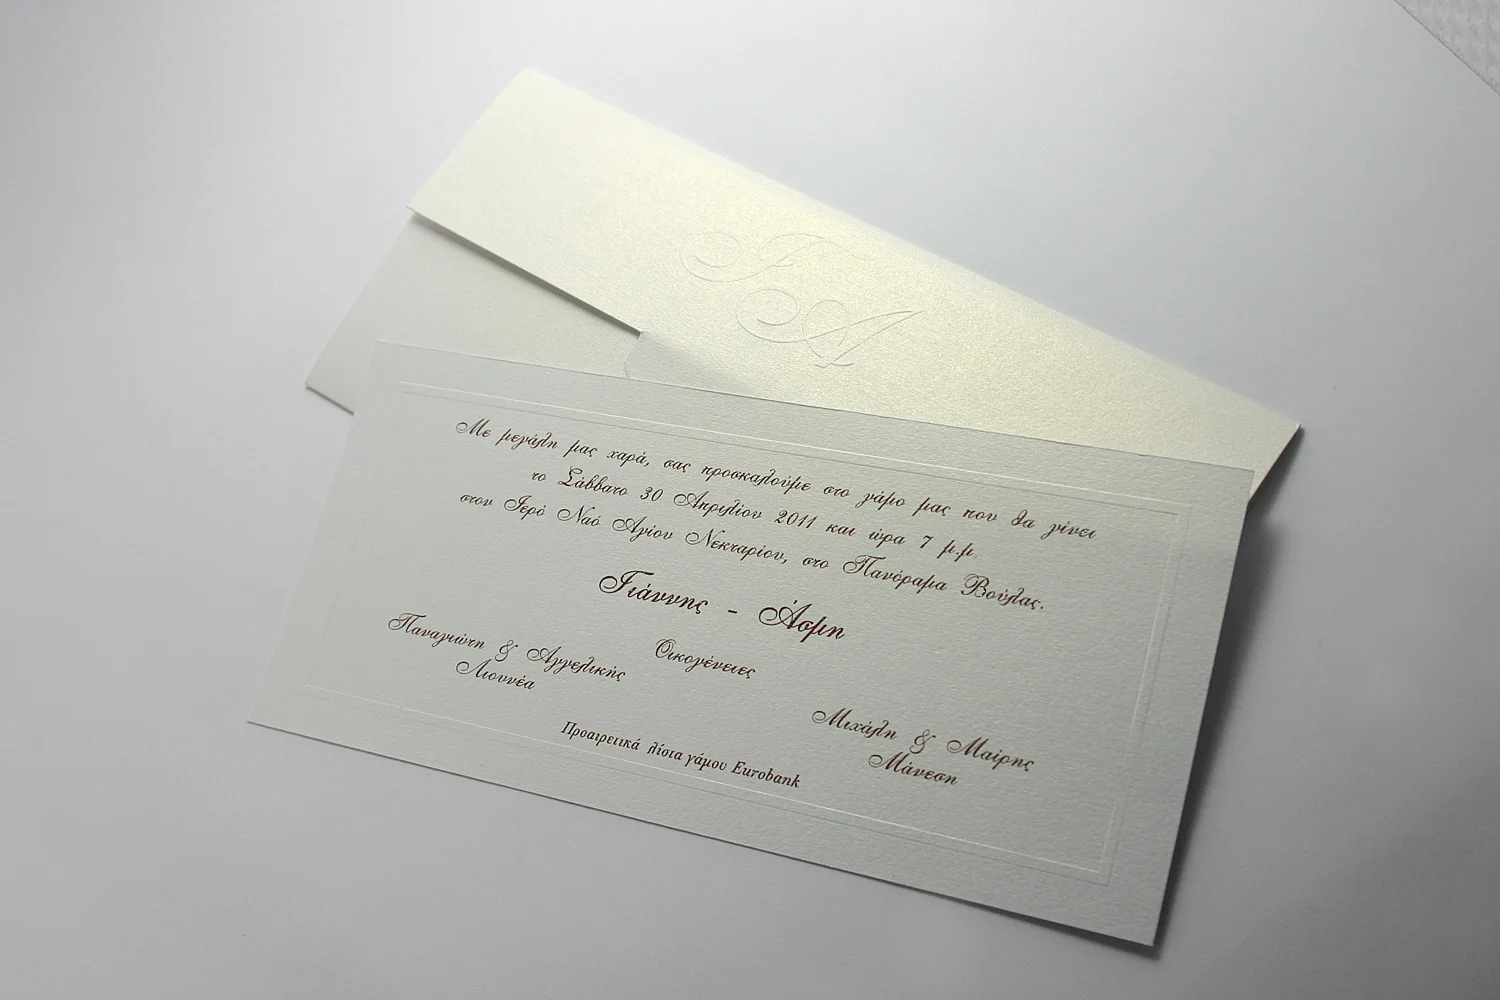 Γ
Α
Με μεγάλη μας χαρά, σας προσκαλούμε στο γάμο μας που θα γίνει
το Σάββατο 30 Απριλίου 2011 και ώρα 7 μ.μ.
στον Ιερό Ναό Αγίου Νεκταρίου, στο Πανόραμα Βούλας.
Γιάννης - Άσμη
Οικογένειες
Παναγιώτη & Αγγελικής
Λιοννέα
Μιχάλη & Μαίρης
Μάνεση
Προαιρετικά λίστα γάμου Eurobank